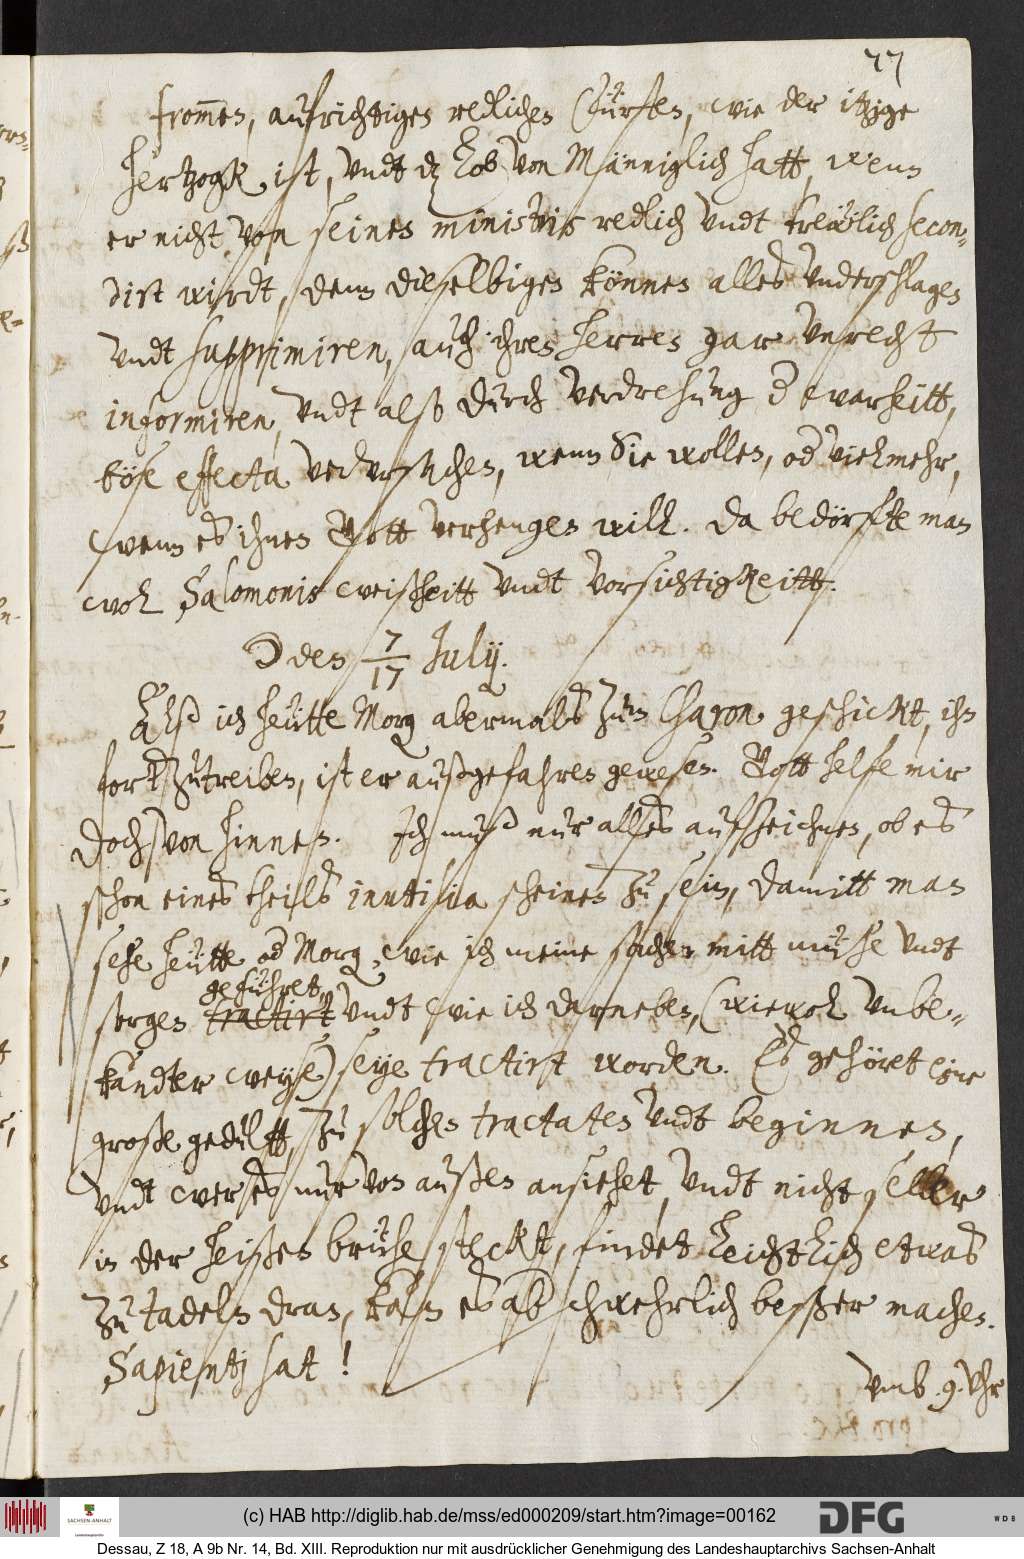 77
frommen, aufrichtigen redlichen Fürsten, wie der itzige
Hertzogk ist, undt dz Lob von Männiglich hatt, wenn
er nicht von seinen ministris redlich undt trewlich secon-
dirt wirdt, denn dieselbigen können alles underschlagen
undt supprimiren, auch ihren Herren gar unrecht
informiren, undt alß durch verdrehung d warheitt,
böse effecta verursachen, wenn Sie wollen, od vielmehr,
wenn es ihnen Gott verhengen will. Da bedörfte man
wol Salomonis weißheitt undt vorsichtigkeitt.
☽ den 7/17 July.
Alß ich heütte Morg abermals zum Charon geschickt, ihn
fortzutreiben, ist er außgefahren gewesen. Gott helfe mir
doch von hinnen. Ich muß nur alles aufzeichnen, ob es
schon eines theils inutilia scheinen zu sein, damitt man
sehe heütte od Morg, wie ich meine sachen mitt mühe undt
geführet,
sorgen tractirt undt wie ich darneben, (wiewol unbe-
kandter weyse) seye tractirt worden. Es gehöret eine
große gedultt, zu solchen tractaten undt beginnen,
undt wer es nur von außen ansiehet, undt nicht selber
in der heißen brühe steckt, findet leichtlich etwas
zu tadeln dran, kan es ab schwehrlich beßer machen.
Sapientj sat!
Umb .9. Uhr
(c) HAB http://diglib.hab.de/mss/ed000209/start.htm?image=00162
SACHSEN-ANHALT
DFG
WDB
Dessau, Z 18, A 9b Nr. 14, Bd. XIII. Reproduktion nur mit ausdrücklicher Genehmigung des Landeshauptarchivs Sachsen-Anhalt